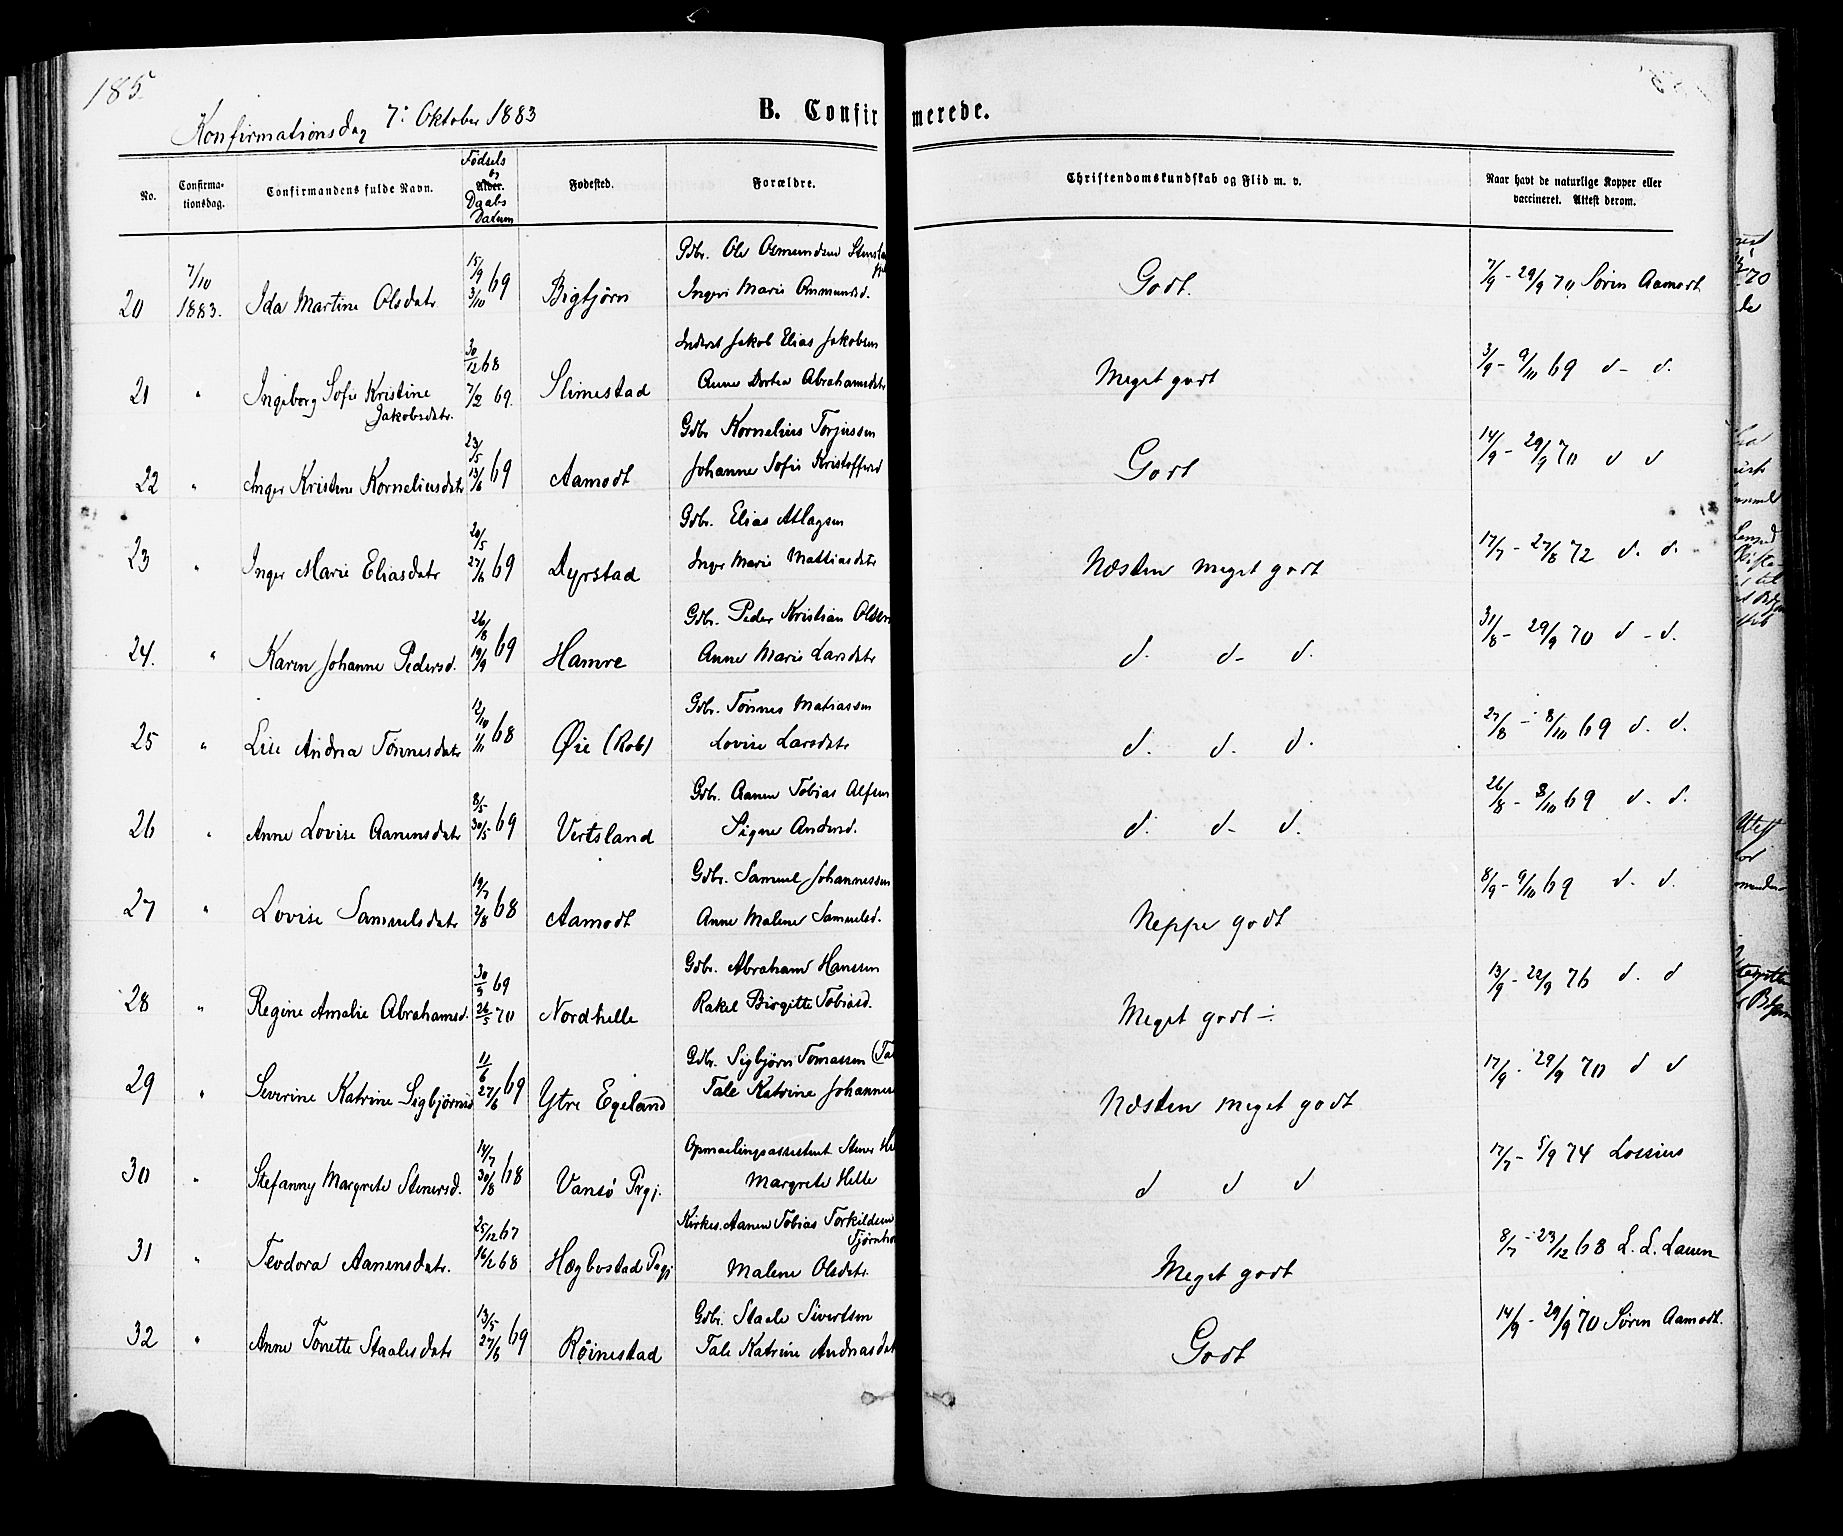 185
Konfirmationsdag 7: Oktober 1883
B. Confirmerede.
No. Confirma-tionsdag. Confirmandens fulde Navn. Fødsels og Alder. Daabs Datum Fødested. Forældre. Christendomskundskab og Flid m. v. Naar havt de naturlige Kopper eller vaccineret. Attest derom.
Gdbr. Ole Osmundsen
20 7/10 1883. Ida Martine Olsdatr 15/9 3/10 69 Bigtjørn Ingeri Marie Ommunds. Godt. 7/9 - 29/9 70 Søren Aamodt
Inderst Jakob Elias Jakobsen
21 " Ingeborg Sofie Kristine Jakobsdatr. 30/12 68 7/2 69. Slimestad Anne Dortea Abrahamsdatr Meget godt 3/9 - 9/10 69 d - d.
Gdbr Kornelius Torjussen
22 " Inger Kristine Korneliusdatr 23/5 13/6 69 Aamodt Johanne Sofie Kristoffersd Godt 14/9 - 29/9 70 d d
Gdbr. Elias Atlagsen
23 " Inger Marie Eliasdatr 20/5 27/6 69 Dyrstad Inger Marie Mathiasdatr Næsten meget godt 17/7 - 27/8 72 d. d.
Gdbr. Peder Kristian Olsen
24. " Karen Johanne Pedersd. 26/8 19/9 69 Hamre Anne Marie Larsdatr d. d- d. 31/8 - 29/9 70 d - d.
Gdbr. Tønnes Matiassen
25 " Lise Andrea Tønnesdatr 12/10 1/11 68 Øie (Rob) Lovise Larsdatr d. d. d. 27/8 - 8/10 69 d. d.
Gdbr. Aanen Tobias Alfsen
26 " Anne Lovise Aanensdatr 8/5 30/5 69 Vertsland Signe Andersd. d. d- d. 26/8 - 8/10 69 d. d.
Gdbr. Samuel Johannessen
27 " Lovise Samuelsdatr 19/7 2/8 68 Aamodt Anne Malene Samuelsd. Neppe godt 8/9 - 9/10 69 d. d.
Gdbr. Abraham Hansen
28 " Regine Amalie Abrahamsd. 30/9 69 26/5 70 Nordhelle Rakel Birgitte Tobiasd. Meget godt ÷ 13/9 - 22/9 76 d. d
Gdbr. Sigbjørn Tomassen
29 " Severine Katrine Sigbjørnsd 11/6 27/6 69 Ytre Egeland Tale Katrine Johannes Næsten meget godt 17/9 - 29/9 70 d d
Opmaalingsassistent Stener He
30 " Stefanny Margrete Stenersd. 14/7 30/8 68 Vansø Prgj. Margrete Helle d d d 17/7 - 5/9 74 Lossius
Kirkes. Aanen Tobias Torkildsen Tjørnho
31 " Teodora Aanensdatr. 25/12 67 16/2 68 Hægbostad Prgj Malene Olsdatr. Meget godt 8/7 - 23/12 68 L. L. Lauen
Gdbr. Staale Sivertsen
32 " Anne Tonette Staalesdatr 13/5 27/6 69 Røinestad Tale Katrine Andreasdat Godt 14/9 - 29/9 70 Søren Aamodt.